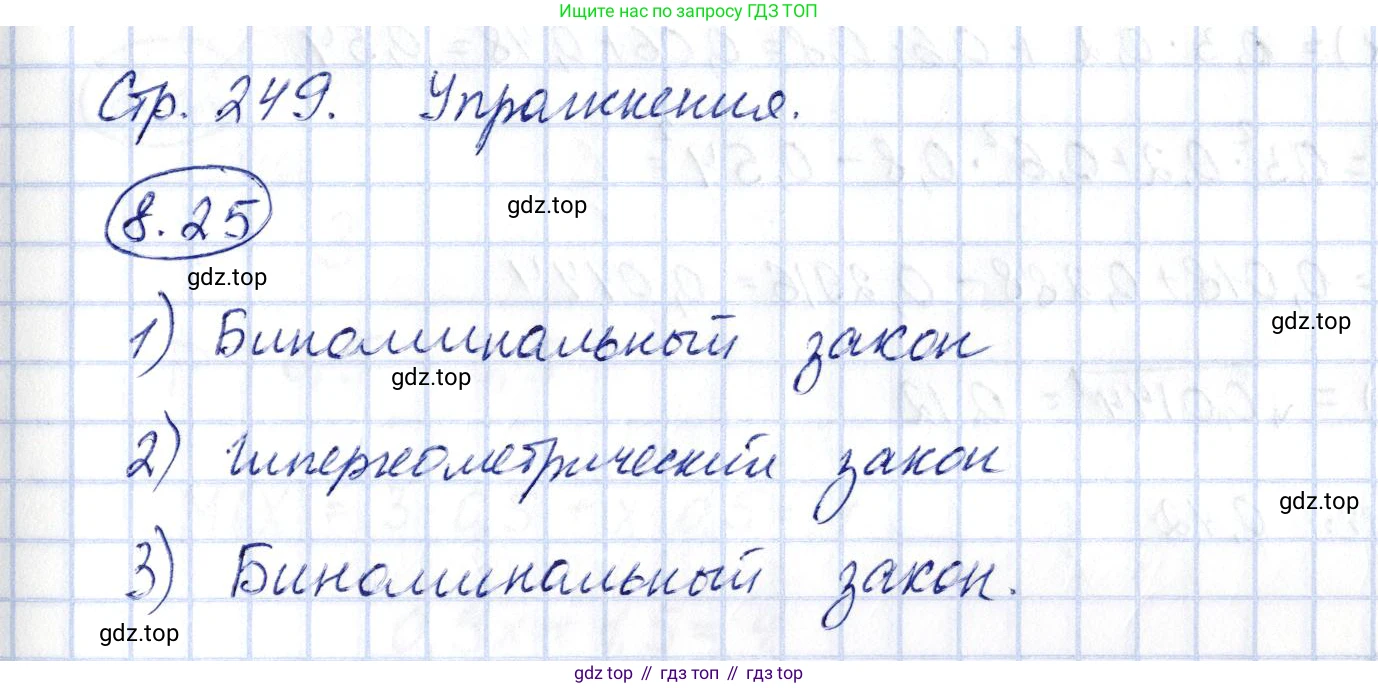 Ищите нас по запросу ГДЗ ТОП
Стр. 249. Упражнения.
8.25
gdz.top
gdz.top
1) Биноминальный закон
gdz.top
gdz.top
2) Гипергеометрический закон
gdz.top
3) Биноминальный закон.
gdz.top
gdz top // гдз топ // gdz top